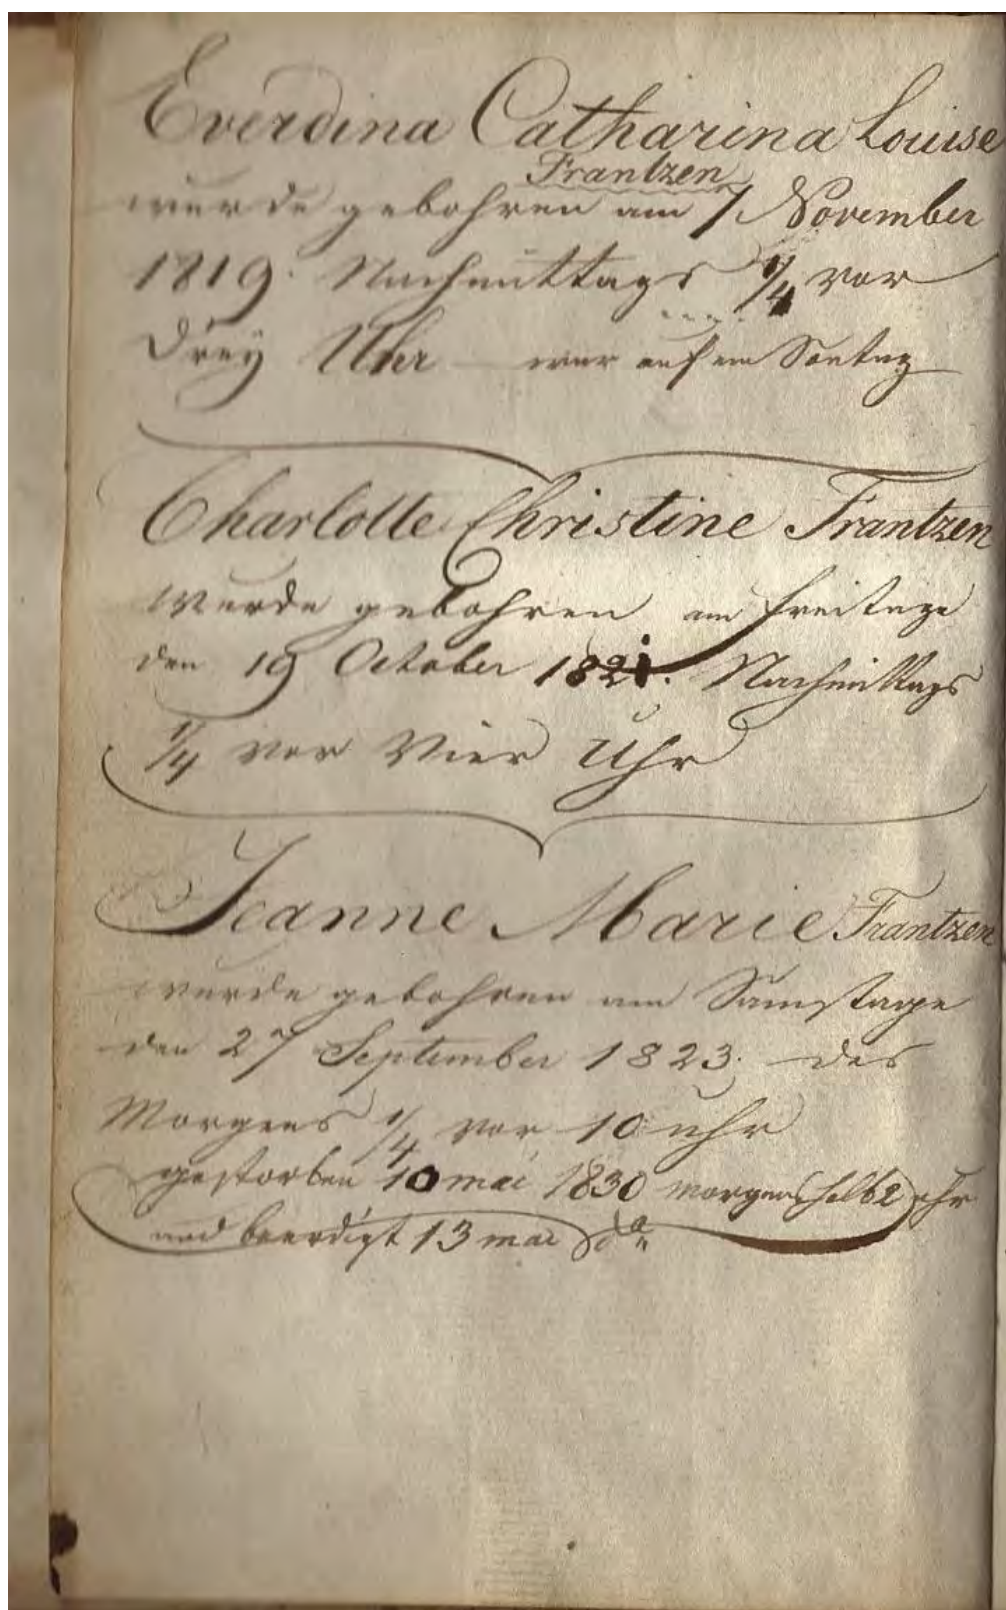 Everdina Catharina Louise
Frantzen
wurde gebohren am 7 November
1819. Nachmittags 1/4 vor
Drey Uhr – war auf ein Sontag
Charlotte Christine Frantzen
wurde gebohren am Freitage
den 19 October 1821. Nachmittags
1/4 vor Vier Uhr
Jeanne Marie Frantzen
wurde gebohren am Samstage
den 27 September 1823. des
Morgens 1/4 vor 10 uhr
gestorben 10 mai 1830 morgens halb 2 uhr
und beerdigt 13 mai